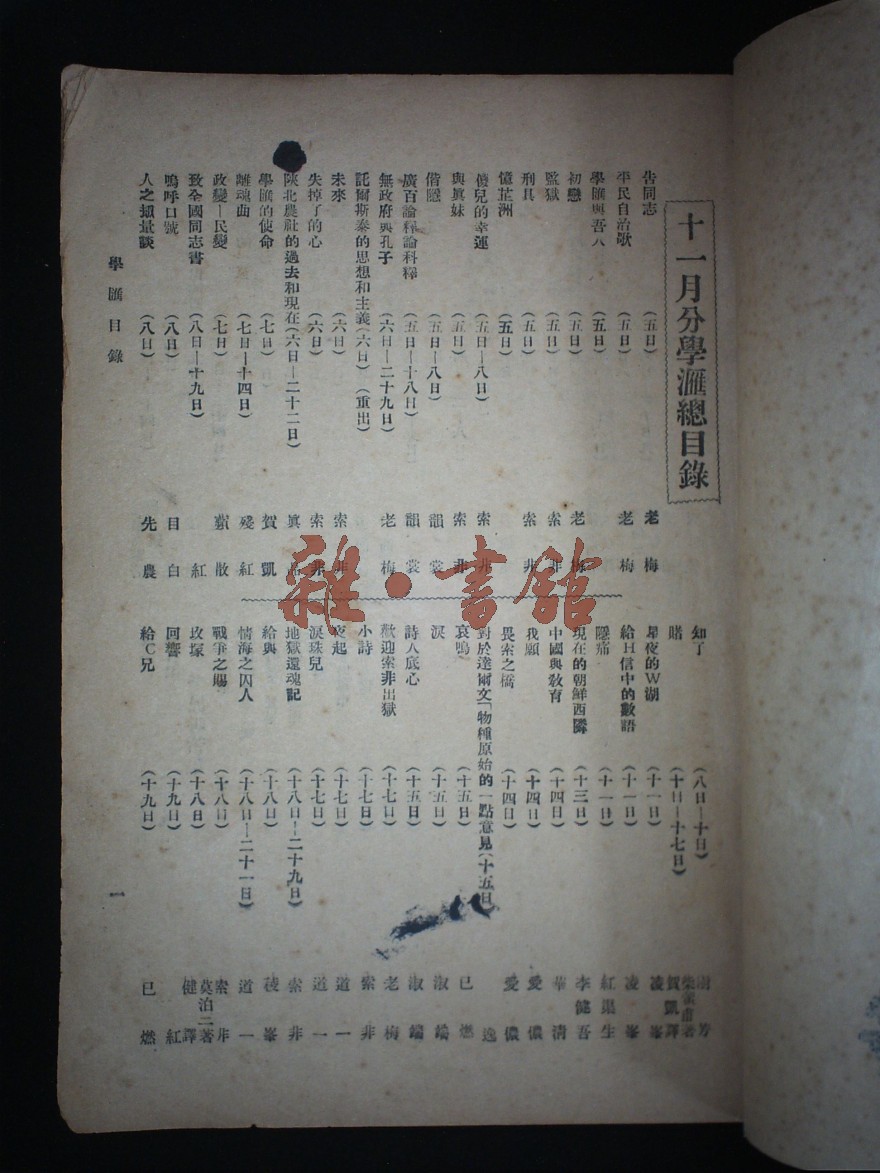 十一月分學滙總目錄
告同志 (五日) 老梅
平民自治歌 (五日) 老梅
學匯與吾人 (五日)
初戀 (五日) 老梅
監獄 (五日) 索非
刑具 (五日) 索非
憶芷洲 (五日)
傻兒的幸運 (五日—八日) 索非
與眞妹 (五日) 索非
偕隱 (五日—八日) 韻裳
廣百論釋論科釋 (五日—十八日) 韻裳
無政府與孔子 (六日—二十九日) 老梅
託爾斯泰的思想和主義 (六日) (重出)
未來 (六日) 索非
失掉了的心 (六日) 索非
陝北農社的過去和現在 (六日—二十二日)
學匯的使命 (七日) 賀凱
離魂曲 (七日—十四日) 殘紅
政變—民變 (七日)
致全國同志書 (八日—十九日) 紅
嗚呼口號 (八日) 目白
人之頹量談 (八日) 先農
知了 (八日—十日)
賭 (十日—十七日) 賀凱譯
星夜的W湖 (十一日) 凌峯
給H信中的數語 (十一日) 凌峯
隱痛 (十一日)
現在的朝鮮西隣 (十三日) 李健吾
中國與敎育 (十四日) 華清
我願 (十四日) 愛儂
畏索之橋 (十四日) 愛儂
對於達爾文「物種原始的一點意見 (十五日) 逸
哀鳴 (十五日) 已燃
淚 (十五日) 淑端
詩人底心 (十五日) 淑端
歡迎索非出獄 (十七日) 老梅
小詩 (十七日) 索非
夜起 (十七日) 道一
淚珠兒 (十七日) 道一
地獄還魂記 (十八日—二十九日) 索非
給與 (十八日) 稜峯
情海之囚人 (十八日—二十一日) 道一
戰爭之賜 (十八日) 索非
玫塚 (十八日) 莫泊三著 健譯
回響 (十九日) 紅
給C兄 (十九日) 已燃
學匯目錄
一
雜·書館